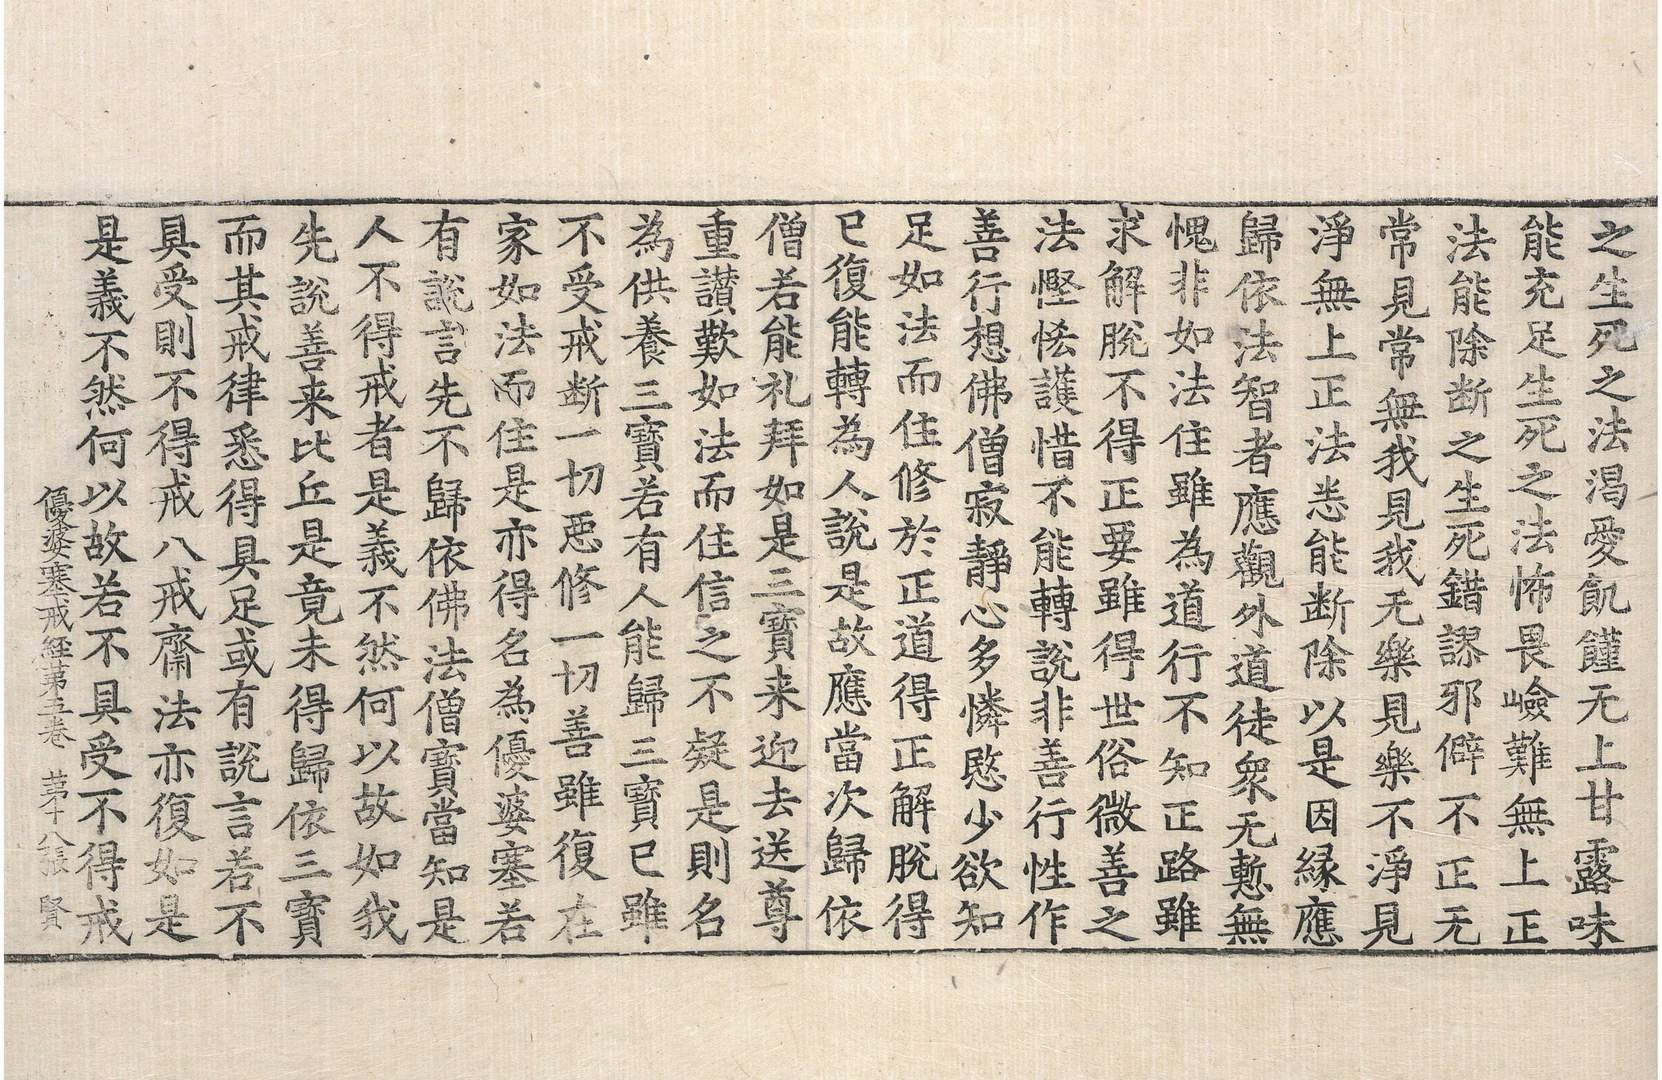 之生死之法渴愛飢饉无上甘露味
能充足生死之法怖畏嶮難無上正
法能除断之生死錯謬邪僻不正无
常見常無我見我无樂見樂不淨見
淨無上正法悉能断除以是因縁應
歸依法智者應觀外道徒衆无慙無
愧非如法住雖為道行不知正路雖
求解脫不得正要雖得世俗微善之
法慳悋護惜不能轉說非善行性作
善行想佛僧寂靜心多憐愍少欲知
足如法而住修於正道得正解脫得
已復能轉為人說是故應當次歸依
僧若能礼拜如是三寶来迎去送尊
重讃歎如法而住信之不疑是則名
為供養三寶若有人能歸三寶已雖
不受戒断一切惡修一切善雖復在
家如法而住是亦得名為優婆塞若
有說言先不歸依佛法僧寶當知是
人不得戒者是義不然何以故如我
先說善来比丘是竟未得歸依三寶
而其戒律悉得具足或有說言若不
具受則不得戒八戒齋法亦復如是
是義不然何以故若不具受不得戒
優婆塞戒経第五卷 苐十八張 賢